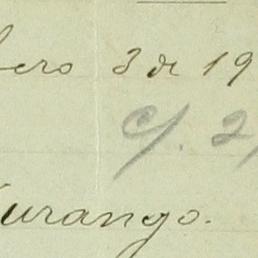 bero 3 de 19
c/. 2
urango.